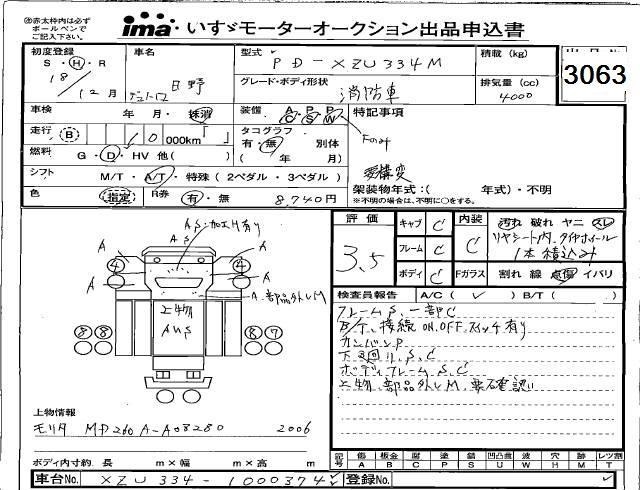 ㊟赤太枠内は必ず
ボールペンで
ご記入下さい。
ima いすゞモーターオークション出品申込書
初度登録 車名 型式 積載 (kg)
S・H・R PD-XZU334M
18 / 12月 デュトロ 日野
グレード・ボディ形状 排気量 (cc)
消防車 4000
3063
車検 年 月・抹消 装備 A P P 特記事項
C S W
Fのみ
走行 B 0 000km「 」 タコグラフ
有・無 別体
燃料 G・D・HV 他( ) ( 年 月)
シフト M/T・A/T・特殊(2ペダル・3ペダル) 架装物年式:( 年式)・不明
※不明の場合は、不明に○をする。
色 指定 R券 有・無 8,740円
評価 キャブ C 内装 汚れ 破れ ヤニ スレ
3.5 フレーム C C リヤシート内、タイヤホイール
1本積込み
ボディ C Fガラス 割れ 線 点傷 イバリ
検査員報告 A/C( ✓ ) B/T( )
フレームS、一部C
B/T、接続ON、OFFスイッチ有り
カンバンP
下回りS、C
ボディフレームS、C
上物、部品外しM、要石確認
AS・加工M有り
AS
A A
④ ④
A A
A、部品外しM
上物
AUS
⑧⑧ ⑧⑦
上物情報
モリタ MD260A-A08280 2006
ボディ内寸約 長 m×幅 m×高 m
記号 傷 板金 腐 塗 錆 凹凸曲 波 穴 跡 レツ割
A B C P S U W H M T
車台No. XZU334-1000374 登録No.